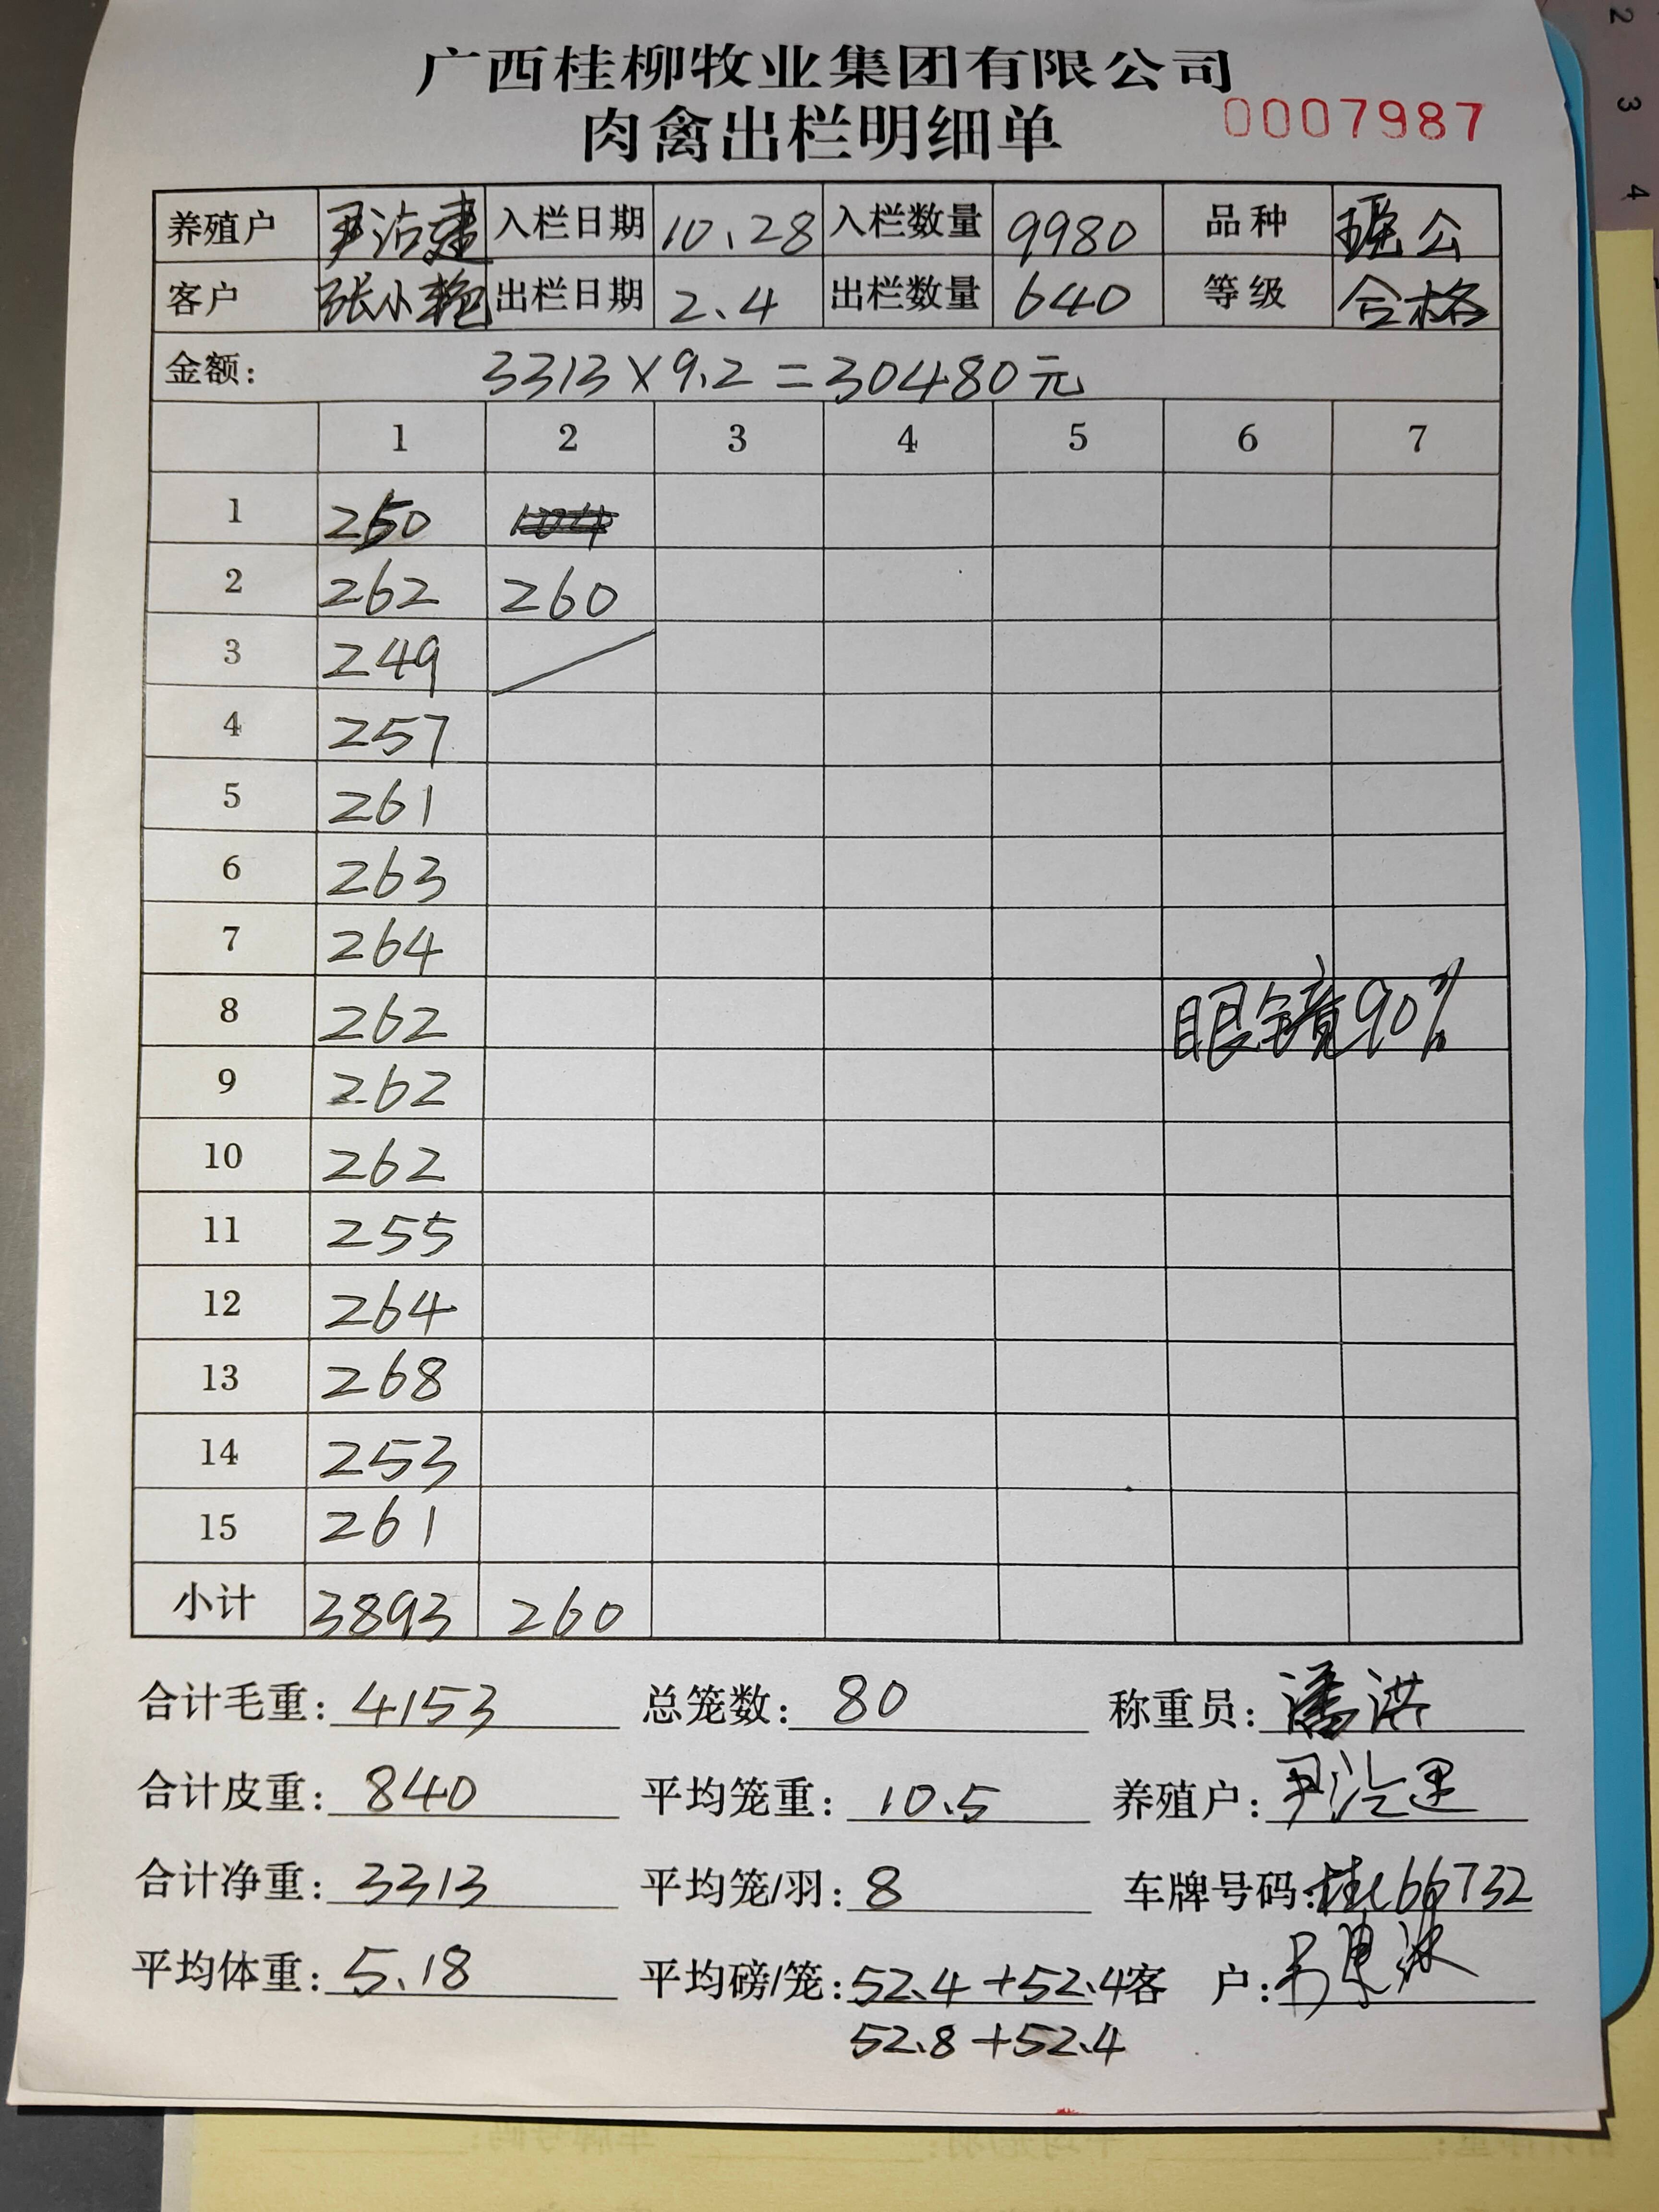 广西桂柳牧业集团有限公司
肉禽出栏明细单 0007987
养殖户 尹治建 入栏日期 10.28 入栏数量 9980 品种 瑶公
客户 张小艳 出栏日期 2.4 出栏数量 640 等级 合格
金额: 3313×9.2=30480元
1 2 3 4 5 6 7
1 250
2 262 260
3 249
4 257
5 261
6 263
7 264
8 262 眼镜90%
9 262
10 262
11 255
12 264
13 268
14 253
15 261
小计 3893 260
合计毛重: 4153 总笼数: 80 称重员: 潘洪
合计皮重: 840 平均笼重: 10.5 养殖户: 尹治建
合计净重: 3313 平均笼/羽: 8 车牌号码: 桂C66732
平均体重: 5.18 平均磅/笼: 52.4+52.4 客 户:
52.8+52.4
2
3
4